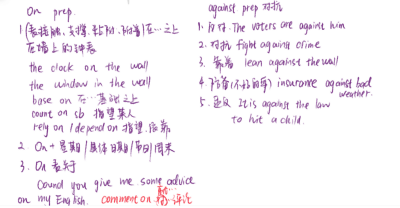 on prep
1 (表接触、支撑、 附着) 在…之上
在墙上的钟表
the clock on the wall
the window in the wall
base on 在…基础之上
count on sb 指望某人
rely on / depend on 指望,依靠
2. On + 星期 / 具体日期 / 节日 / 周末
3. On 关于
Cound you give me some advice
on my English. comment on 评论
against prep 对抗
1. 反对. The voters are against him
2. 对抗 fight against crime
3. 靠着 lean against the wall
4. 防备 insurance against bad
weather.
5. 违反 It is against the law
to hit a child.